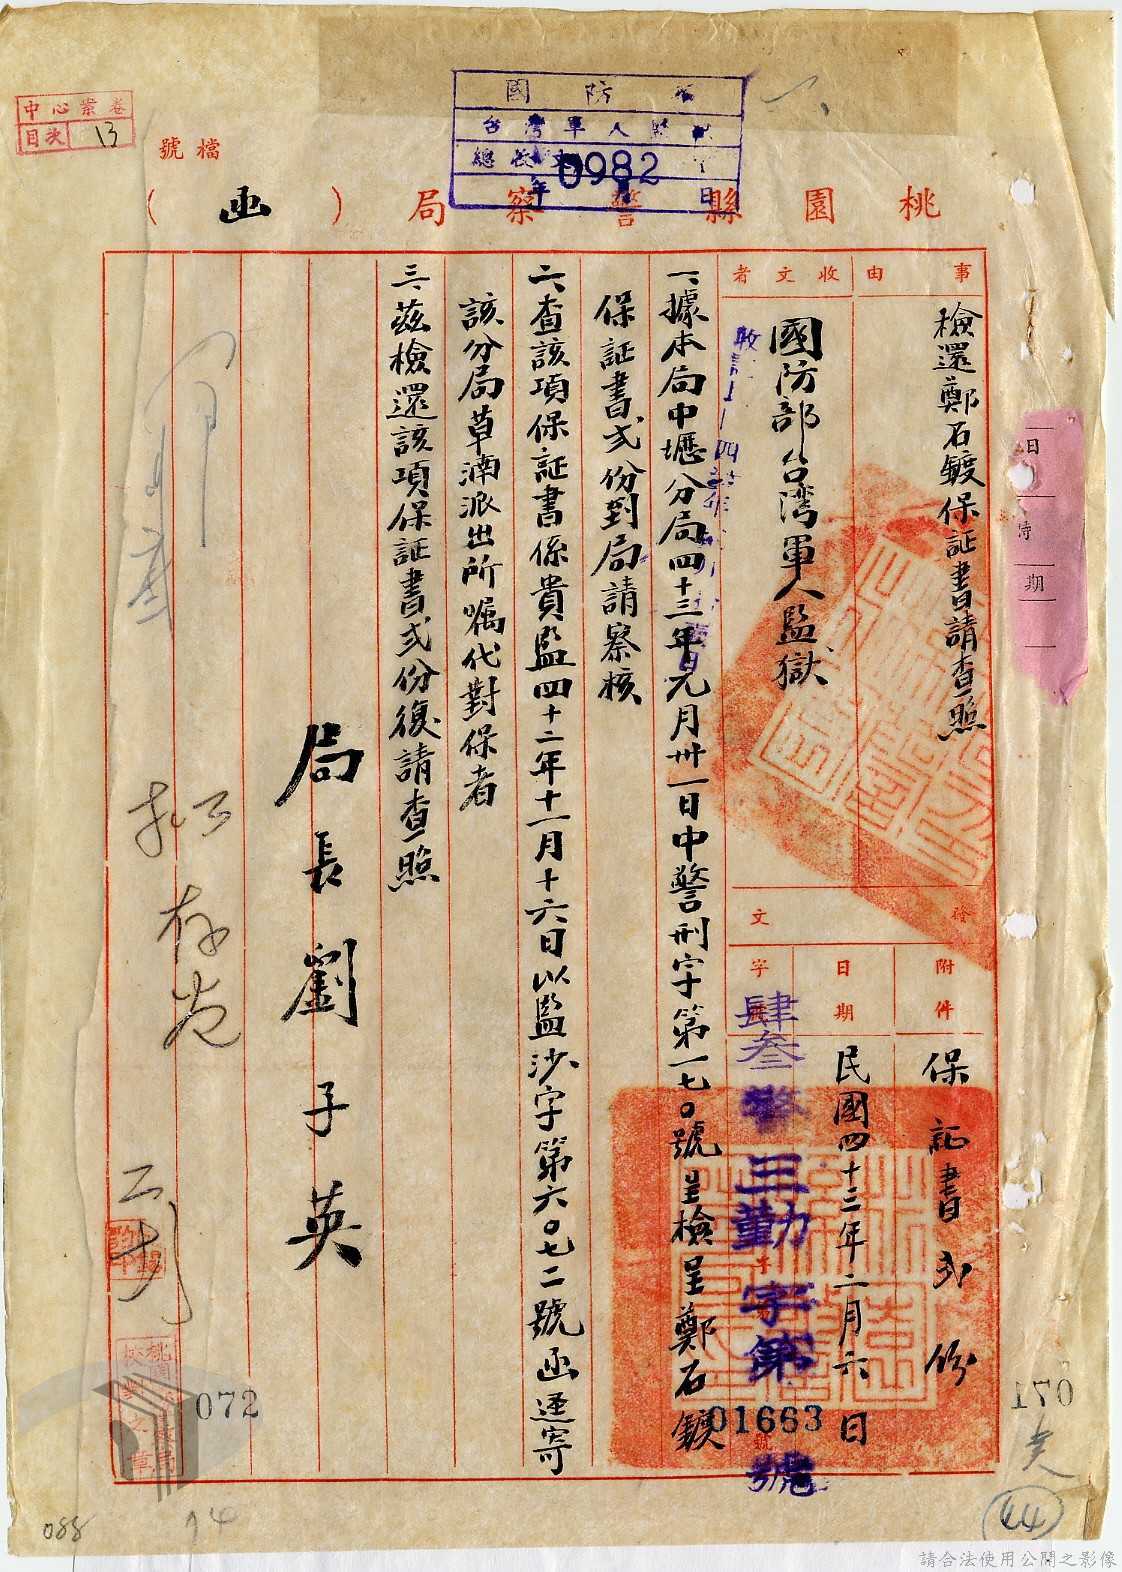 中心業卷
目次 13
檔號
國防部
台灣軍人監獄
0982
年 日
桃園縣警察局（函）
事由
檢還鄭石鍍保証書請查照
收文者
國防部台湾軍人監獄
發文
附件
保証書弍份
日期
民國四十三年二月六日
字
肆叁警三勤字第01663號
一、據本局中壢分局四十三年元月卅一日中警刑字第一七0號呈檢呈鄭石鍍
保証書弍份到局請察核
二、查該項保証書係貴監四十二年十一月十六日以監沙字第六0七二號函逕寄
該分局草湳派出所嘱代對保者
三、茲檢還該項保証書弍份復請查照
局長劉子英
存卷
日
時
期
072
170
44
088
請合法使用公開之影像